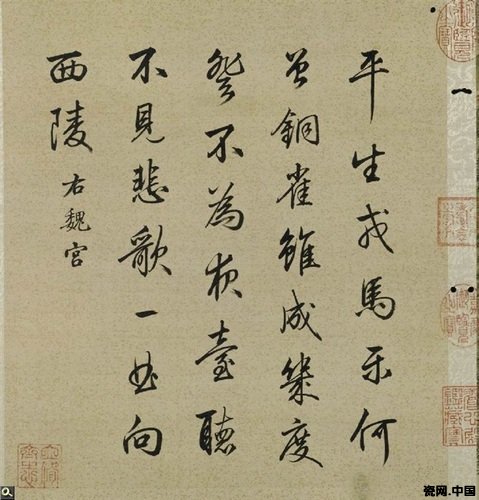 平生戎馬樂何
曾銅雀雖成幾度
登不為夜臺聽
不見悲歌一曲向
西陵
右魏宮
瓷网.中国